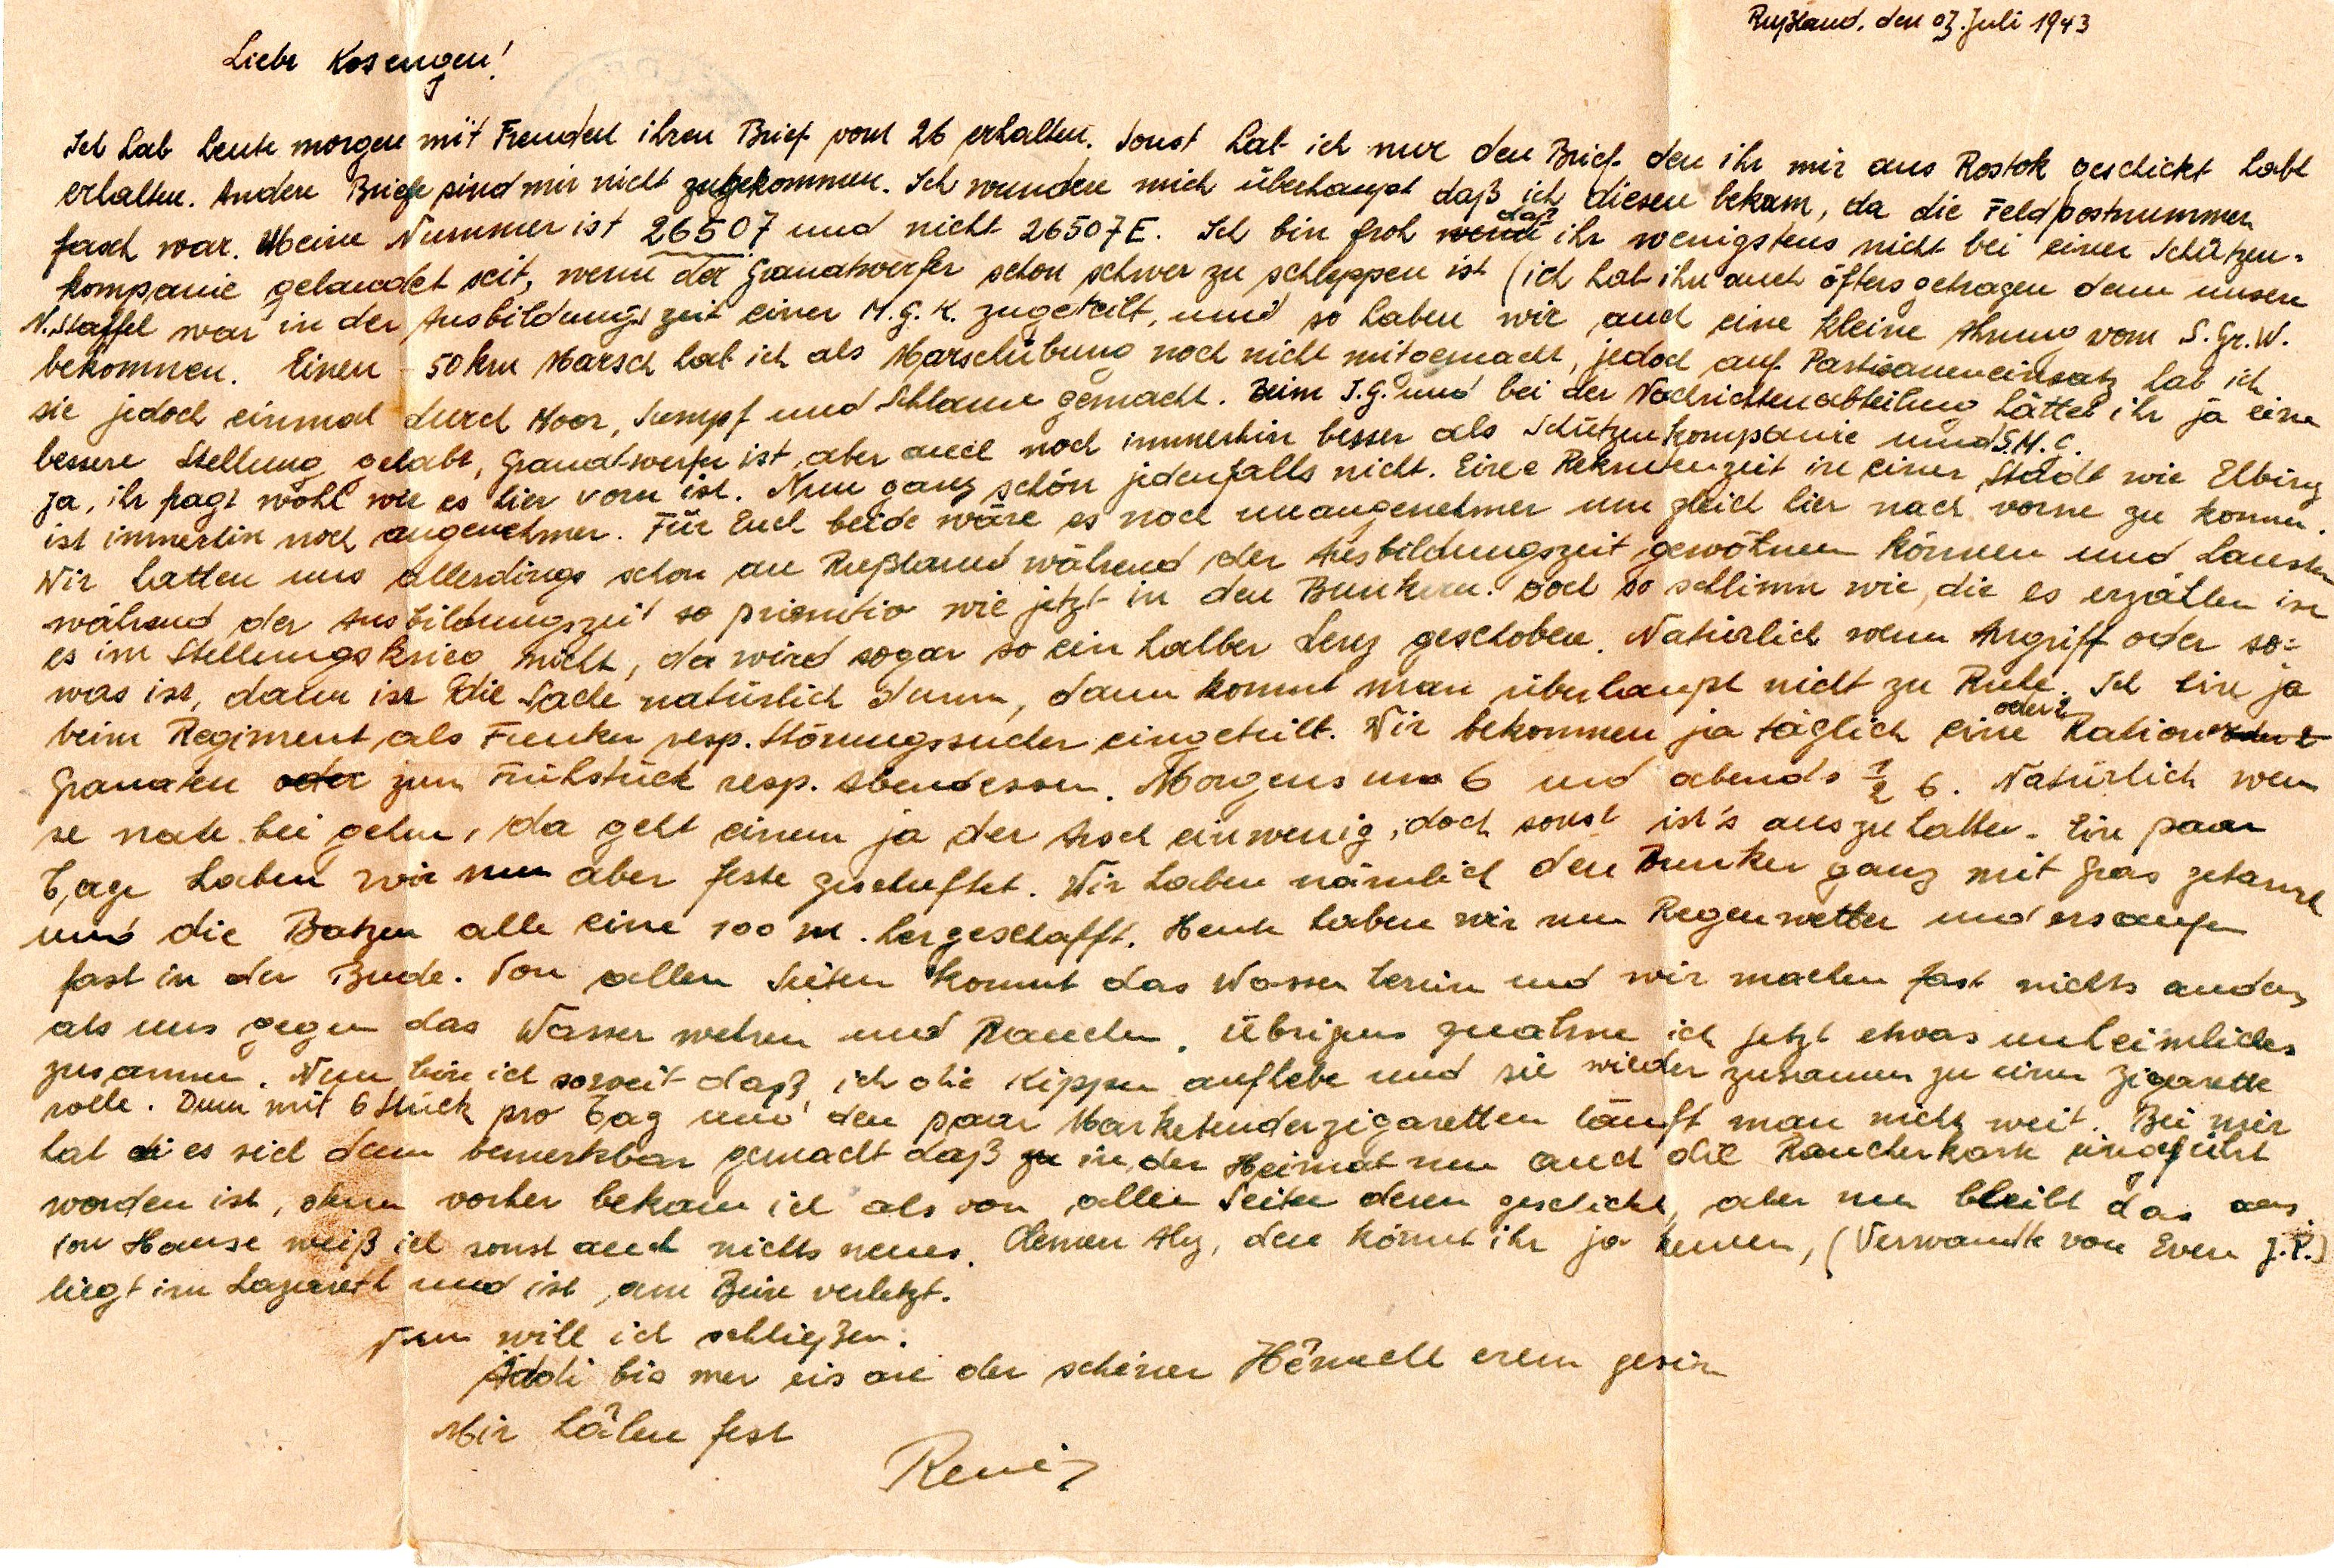 Rußland, den 07. Juli 1943
Liebe Kosengen!
Ich hab heute morgen mit Freuden ihren Brief vom 26 erhalten. Sonst hab ich nur den Brief den ihr mir aus Rostok geschickt habt
erhalten. Andere Briefe sind mir nicht zugekommen. Ich wundere mich überhaupt daß ich diesen bekam, da die Feldpostnummer
fasch war. Meine Nummer ist 26507 und nicht 26507E. Ich bin froh wenn daß ihr wenigstens nicht bei einer Schützen-
kompanie gelandet seit, wenn der Granatwerfer schon schwer zu schleppen ist (ich hab ihn auch öfters getragen denn unsere
N.Staffel war in der Ausbildungszeit einer M.G.K. zugeteilt, und so haben wir auch eine kleine Ahnung vom S.Gr.W.
bekommen. Einen 50km Marsch hab ich als Marschübung noch nicht mitgemacht, jedoch auf Partisaneneinsatz hab ich
sie jedoch einmal durch Moor, Sumpf und Schlamm gemacht. Beim I.G. und bei der Nachrichtenabteilung hättet ihr ja eine
bessere Stellung gehabt, Granatwerfer ist aber auch noch immerhin besser als Schützenkompanie und S.M.C.
Ja, ihr fragt wohl wie es hier vorn ist. Nun ganz schön jedenfalls nicht. Eine Rekrutenzeit in einer Stadt wie Elbing
ist immerhin noch angenehmer. Für Euch beide wäre es noch unangenehmer um gleich hier nach vorne zu kommen.
Wir hatten uns allerdings schon an Rußland während der Ausbildungszeit gewöhnen können und hausten
während der Ausbildungszeit so primitiv wie jetzt in den Bunkern. Doch so schlimm wie die es erzählen ist
es im Stellungskrieg nicht, da wird sogar so ein halber Lenz geschoben. Natürlich wenn Angriff oder so-
was ist, dann ist die Sache natürlich dumm, dann kommt man überhaupt nicht zu Ruhe. Ich bin ja
beim Regiment als Funker resp. Störungssucher eingeteilt. Wir bekommen ja täglich eine oder 2 Ration oder 2
Granaten oder zum Frühstück resp. Abendessen. Morgens um 6 und abends ½ 6. Natürlich wenn
se nahe bei gehn, da geht einem ja der Arsch einwenig, doch sonst ist's auszuhalten. Ein paar
Tage haben wir nun aber feste geschuftet. Wir haben nämlich den Bunker ganz mit Gras getarnt
und die Batzen alle eine 100 m. hergeschafft. Heute haben wir nun Regenwetter und ersaufen
fast in der Bude. Von allen Seiten kommt das Wasser herein und wir machen fast nichts anders
als uns gegen das Wasser wehren und Rauchen. Übrigens qualme ich jetzt etwas unheimliches
zusammen. Nun bin ich soweit daß ich die Kippen aufhebe und sie wieder zusammen zu einer Zigarette
rolle. Denn mit 6 Stück pro Tag und den paar Marketenderzigaretten läuft man nicht weit. Bei mir
hat es sich denn bemerkbar gemacht daß in der Heimat nun auch die Raucherkarte eingeführt
worden ist, denn vorher bekam ich als von allen Seiten deren geschickt, aber nun bleibt das aus.
Von Hause weiß ich sonst auch nichts neues. Clemen Aly, den könnt ihr ja kennen, (Verwandte von Even J.P.)
liegt im Lazarett und ist am Bein verletzt.
Nun will ich schließen.
Äddi bis mer eis an der schéiner Hémecht erem gesin
Mir hâlen fest
René